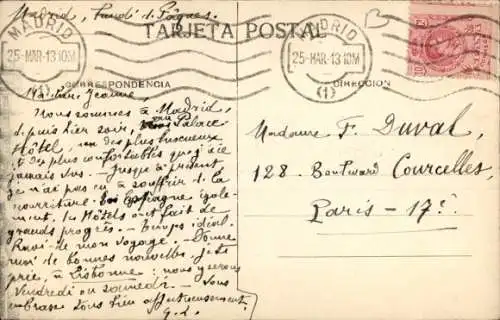 Madrid, Lundi de Pâques.
TARJETA POSTAL
MADRID
25-MAR-13 10M
(1)
MADRID
25-MAR-13 10M
(1)
CORRESPONDENCIA
DIRECCION
Ma chère Jeanne,
Nous sommes à Madrid,
depuis hier soir, au Palace
Hôtel, un des plus luxueux
et des plus confortables que j'aie
jamais vus. Jusqu'à présent
je n'ai pas eu à souffrir de la
nourriture. En Espagne égale-
ment, les Hôtels ont fait de
grands progrès. Temps idéal.
Ravi de mon voyage. Donne
moi de bonnes nouvelles, je te
prie, à Lisbonne: nous y serons
Vendredi ou samedi. Vous
embrasse tous bien affectueusement.
Madame F. Duval,
128. Boulevard Courcelles,
Paris - 17e.